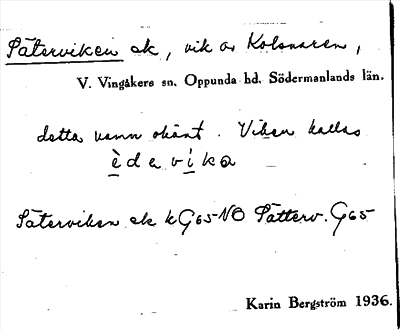 Säterviken ek, vik av Kolsnaren,
V. Vingåkers sn. Oppunda hd. Södermanlands län.
detta namn okänt. Viken kallas
èdevíka
Säterviken ek k G65 NO Sätterv. G65
Karin Bergström 1936.